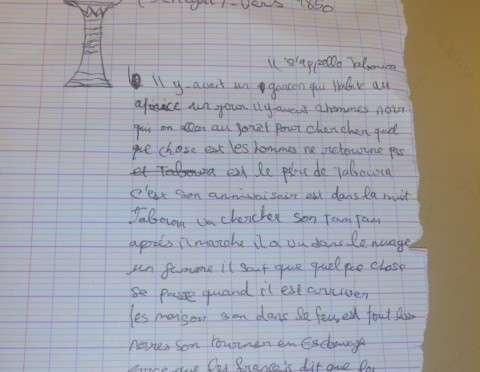 (Sénégal). Vers 1850
il s'appelle Taboura
Il y-avait un garçon qui Habit au
africe un jour il y avait 2 hommes noir
qui on au foret pour chercher quel
que chose est les hommes ne retourne pas
et Taboura est le père de Taboura
C'est son annivaisair est dans la nuit
Taboura va chercher son Tam Tam
après il marche il a vu dans le nuage
un femme il sait que quelque chose
se passe quand il est arriver
les maison son dans le feu, est tout les
noires son tourner en Esclavage
que les français dit que